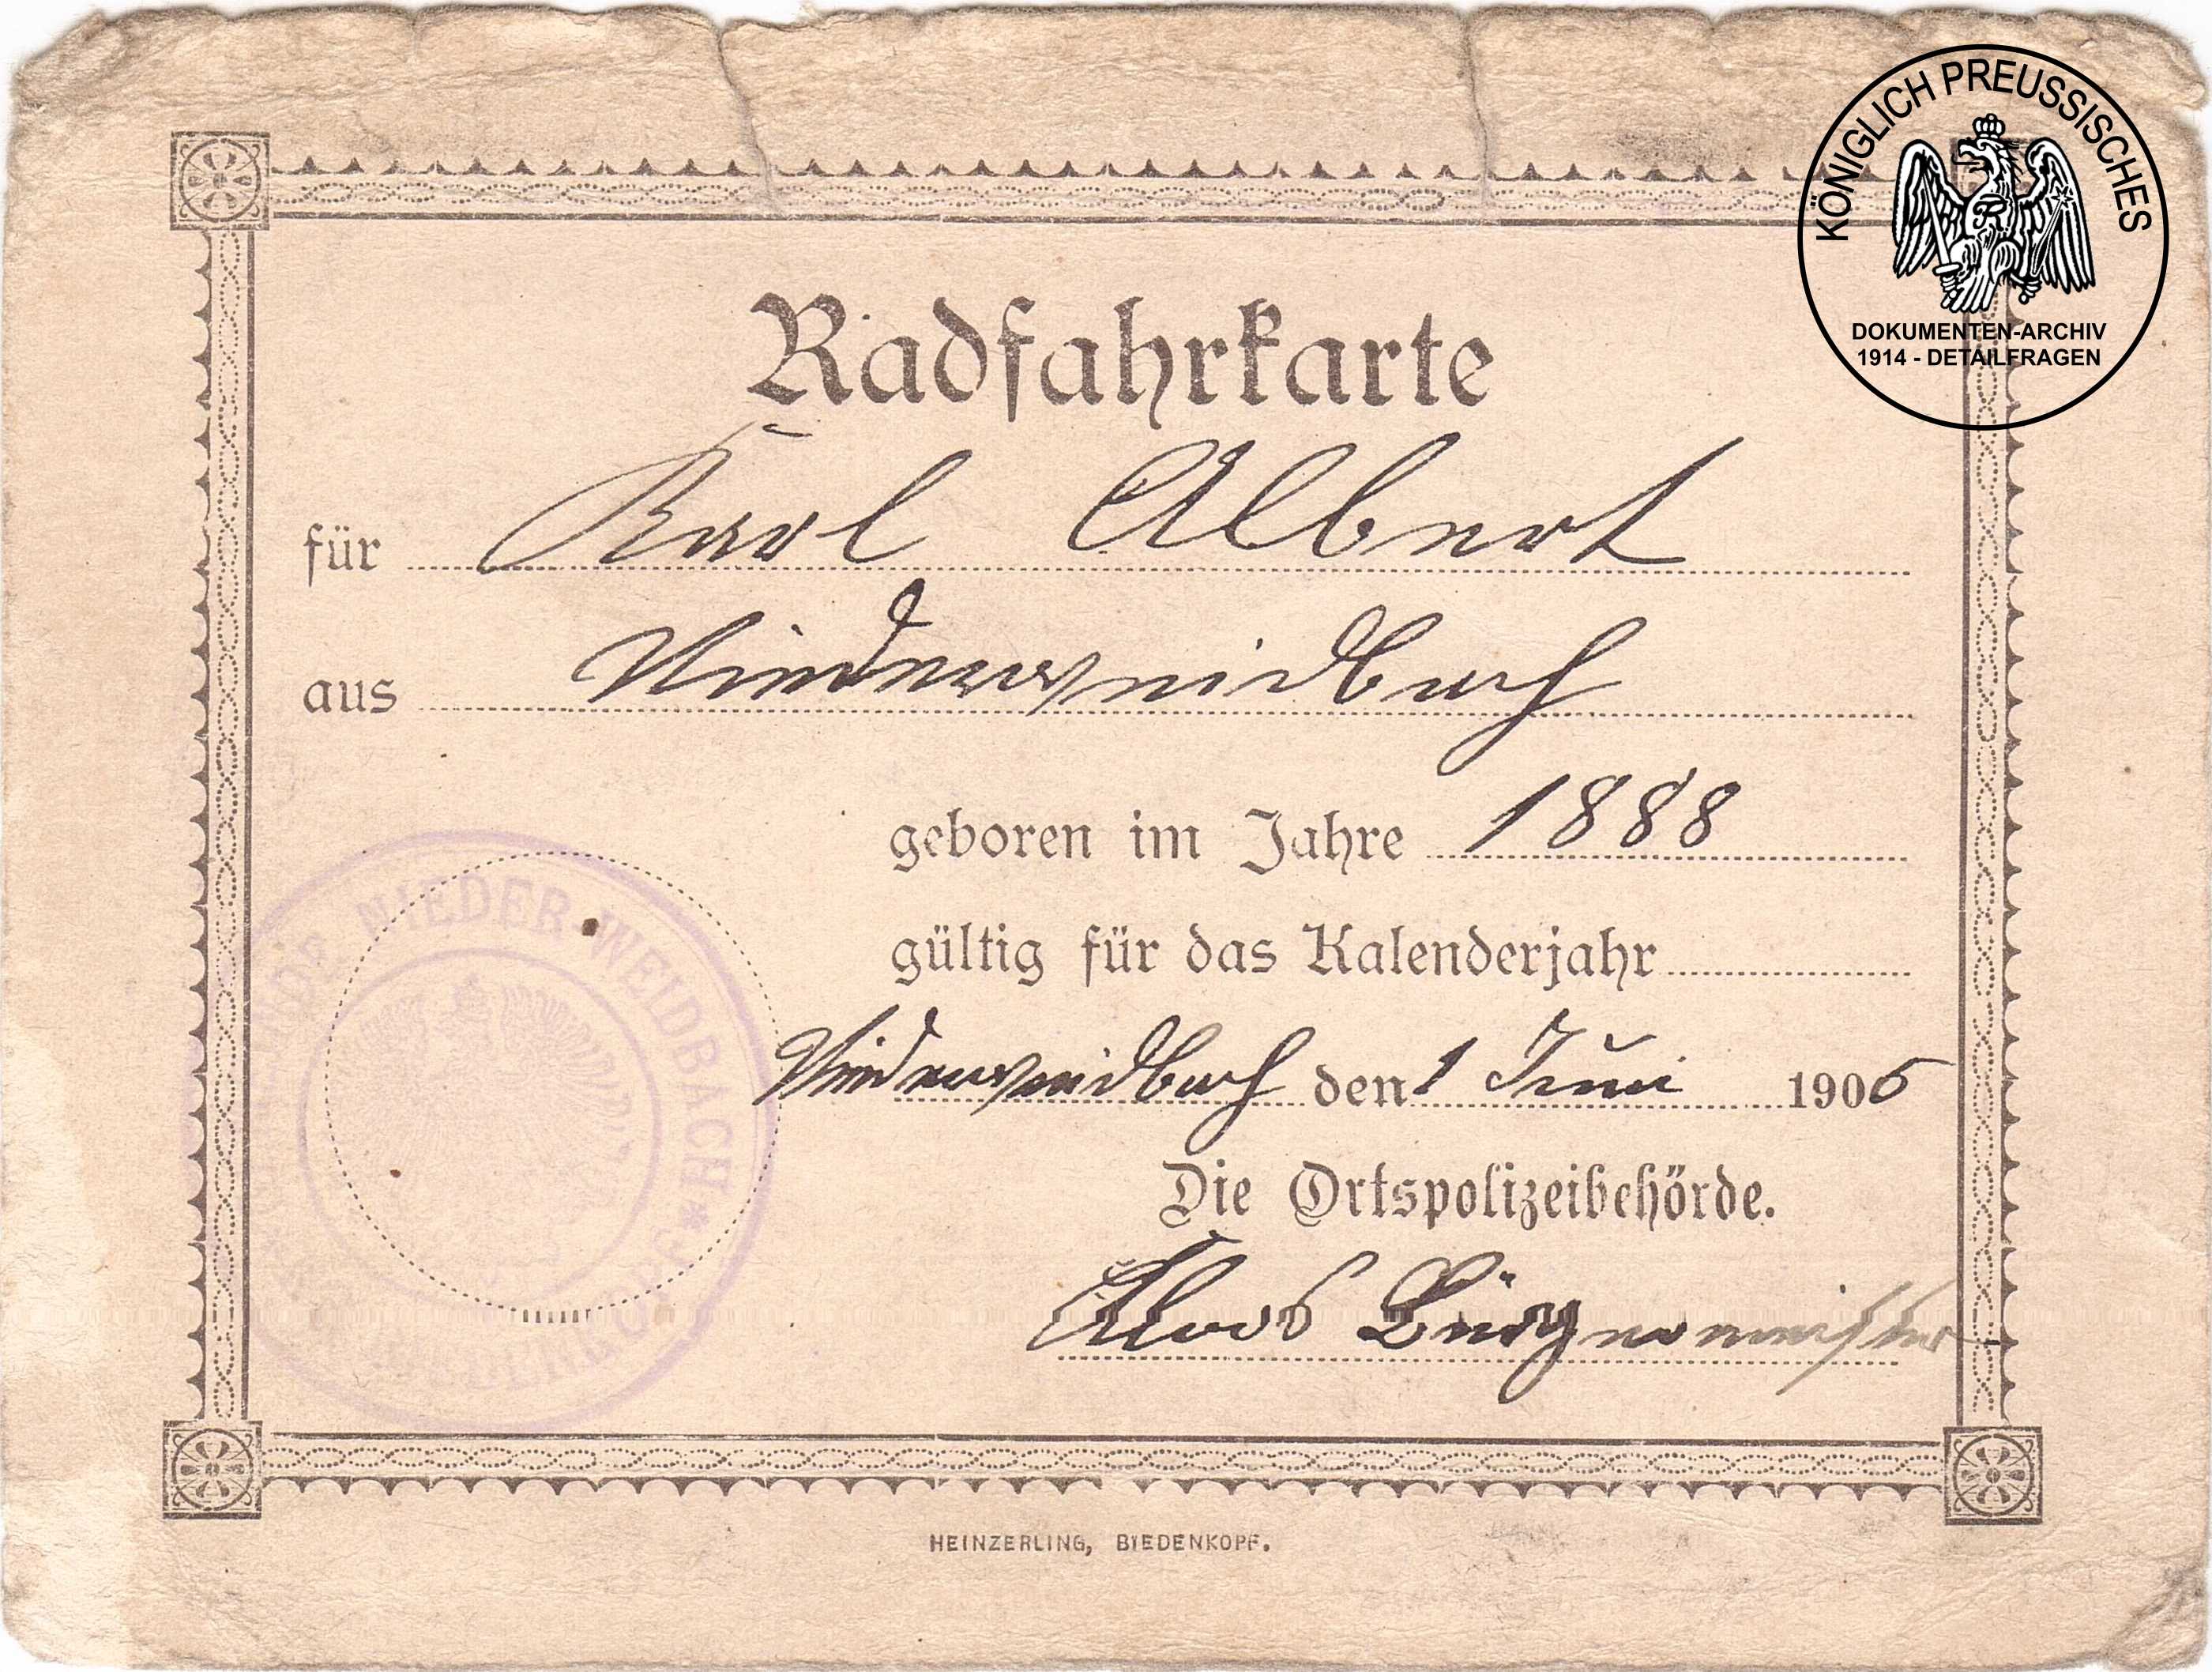 KÖNIGLICH PREUSSISCHES
DOKUMENTEN-ARCHIV
1914 - DETAILFRAGEN
Radfahrkarte
für Karl Albert
aus Niederweidbach
geboren im Jahre 1888
gültig für das Kalenderjahr
Niederweidbach den 1 Juni 1906
Die Ortspolizeibehörde.
Bürgermeister
NIEDER-WEIDBACH *
HEINZERLING, BIEDENKOPF.